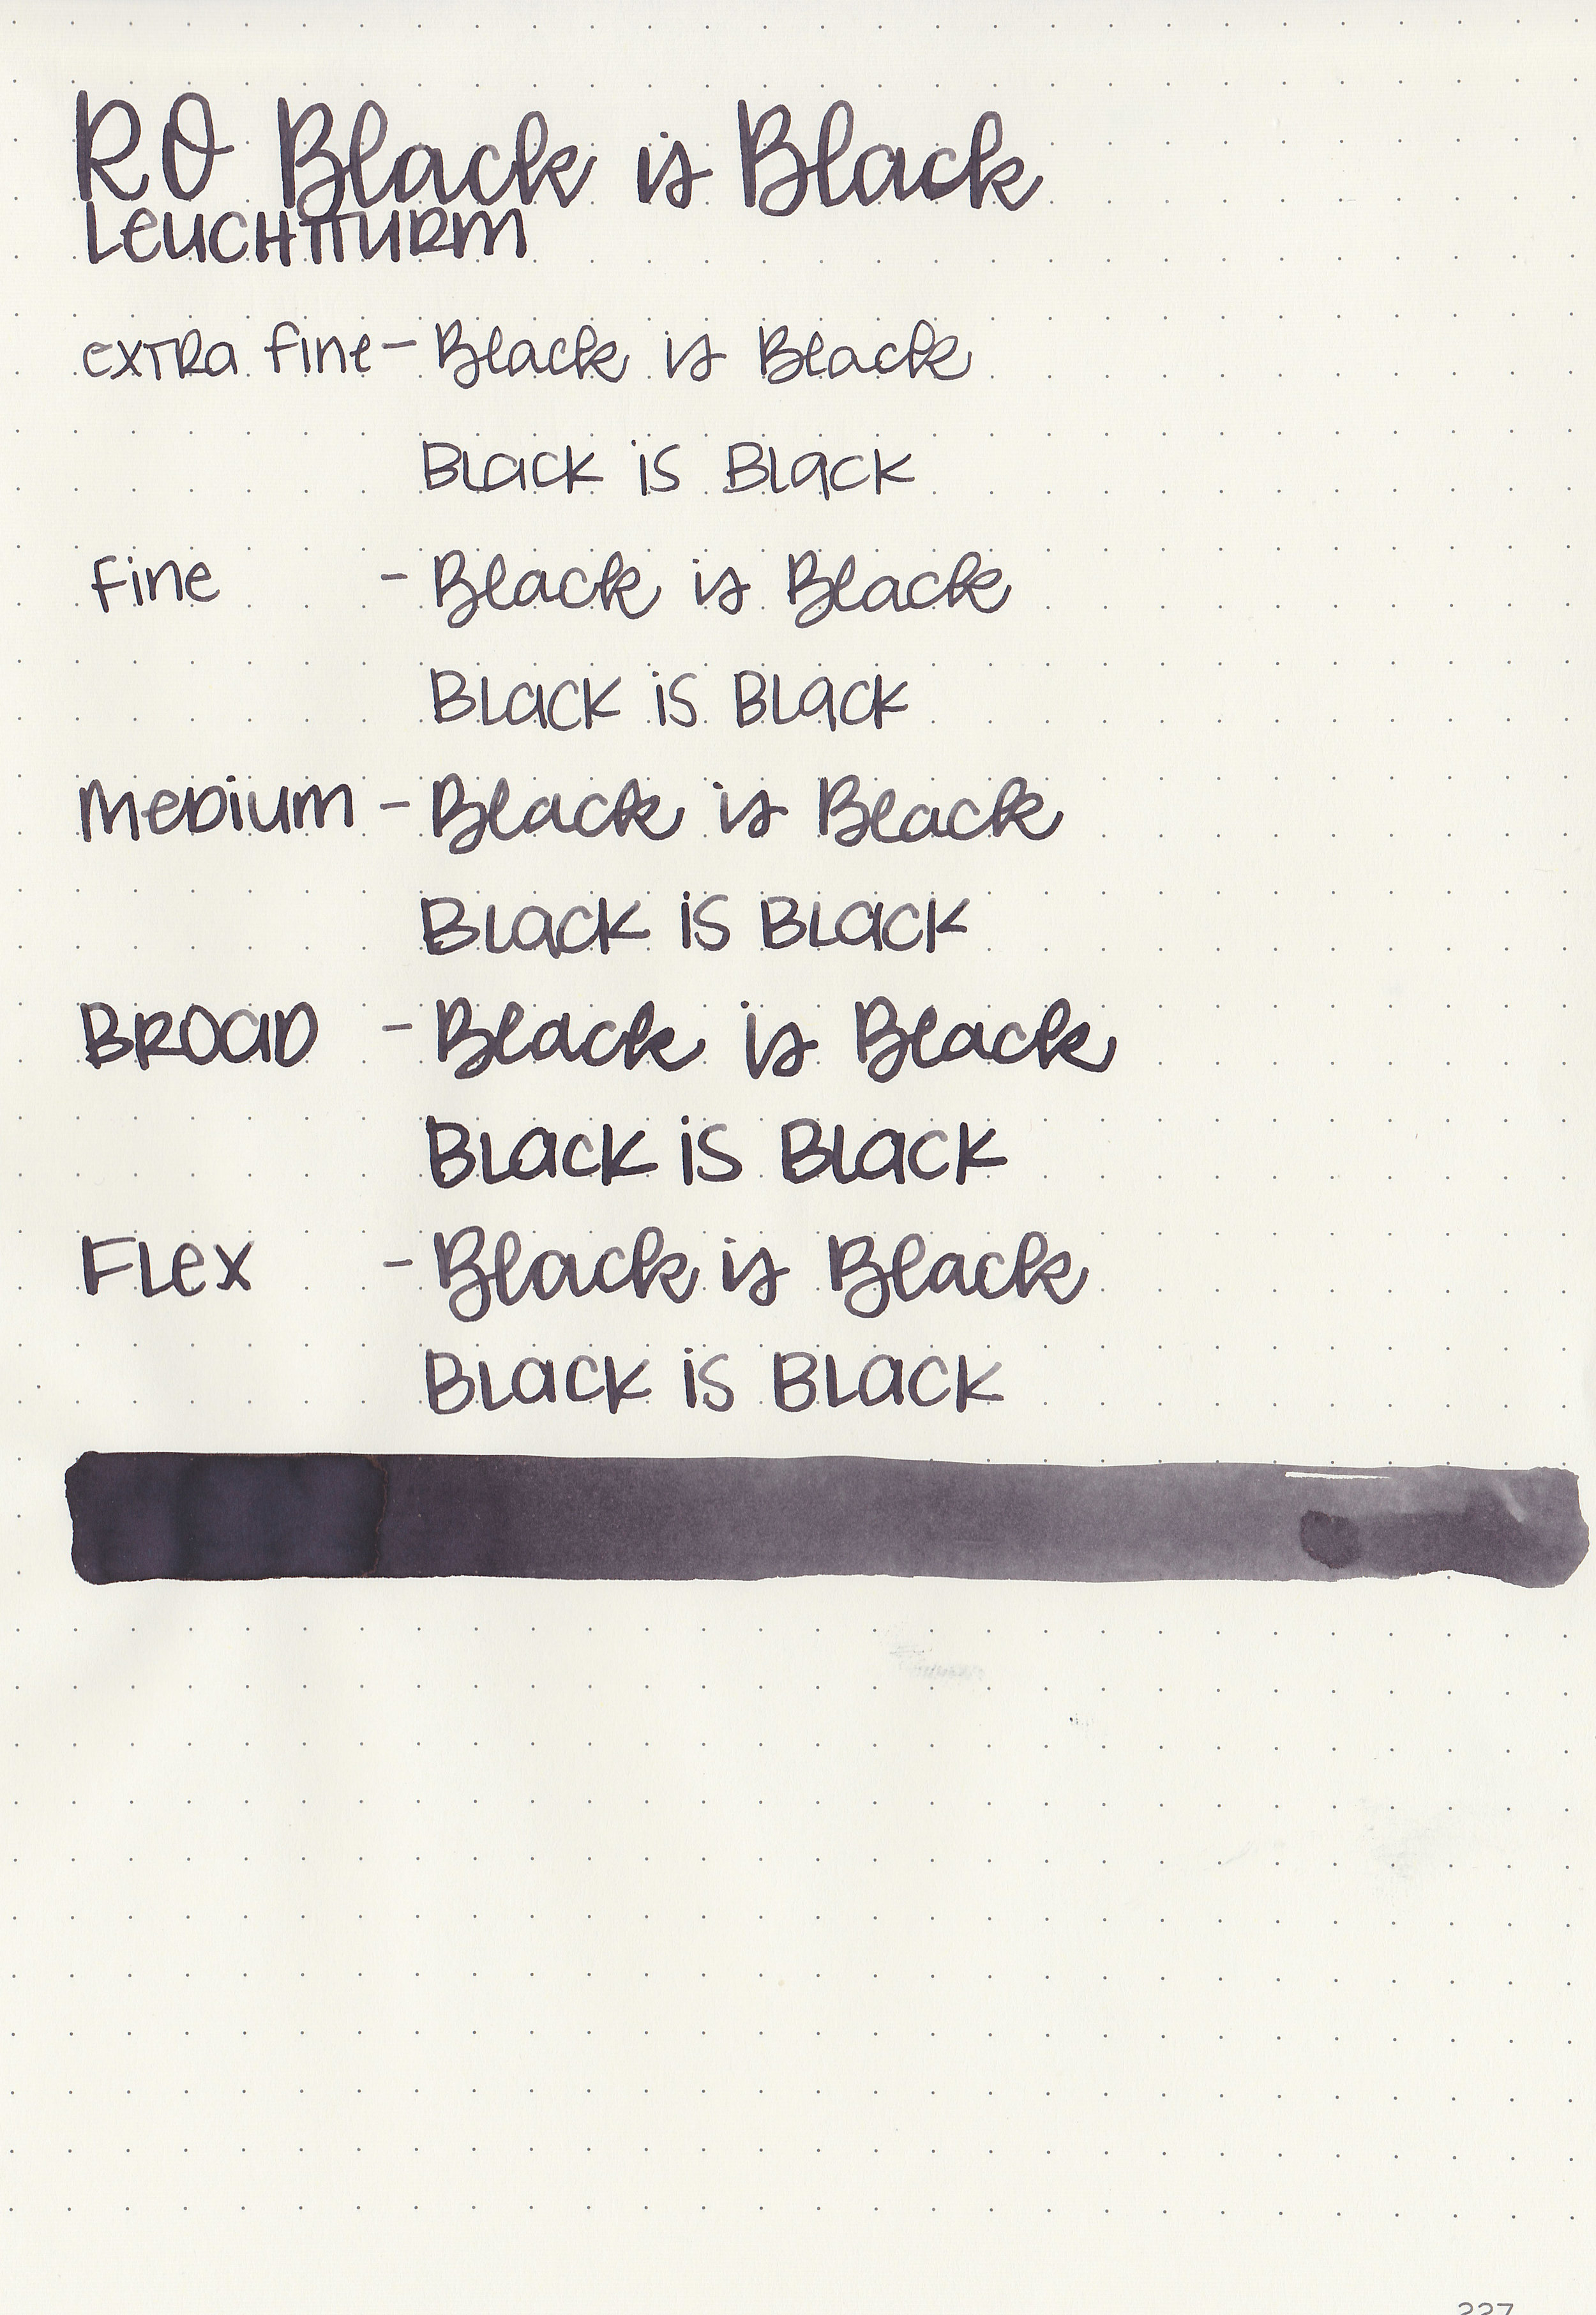 RO Black is Black
LEUCHTTURM
extra fine - Black is Black
Black is Black
fine - Black is Black
Black is Black
Medium - Black is Black
Black is Black
Broad - Black is Black
Black is Black
Flex - Black is Black
Black is Black